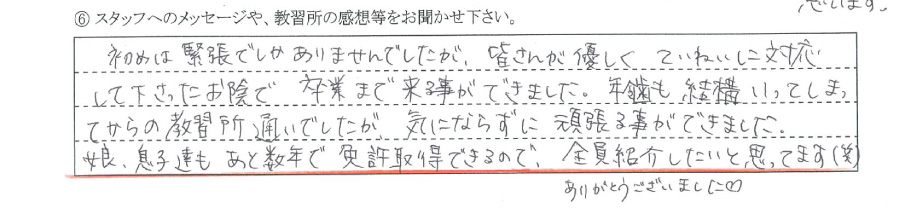 思います。
⑥ スタッフへのメッセージや、教習所の感想等をお聞かせ下さい。
初めは緊張でしかありませんでしたが、皆さんが優しくていねいに対応
して下さったお陰で 卒業まで来る事ができました。年齢も結構いってしまっ
てからの教習所通いでしたが、気にならずに頑張る事ができました。
娘、息子達もあと数年で免許取得できるので、全員紹介したいと思ってます(笑)
ありがとうございました♡